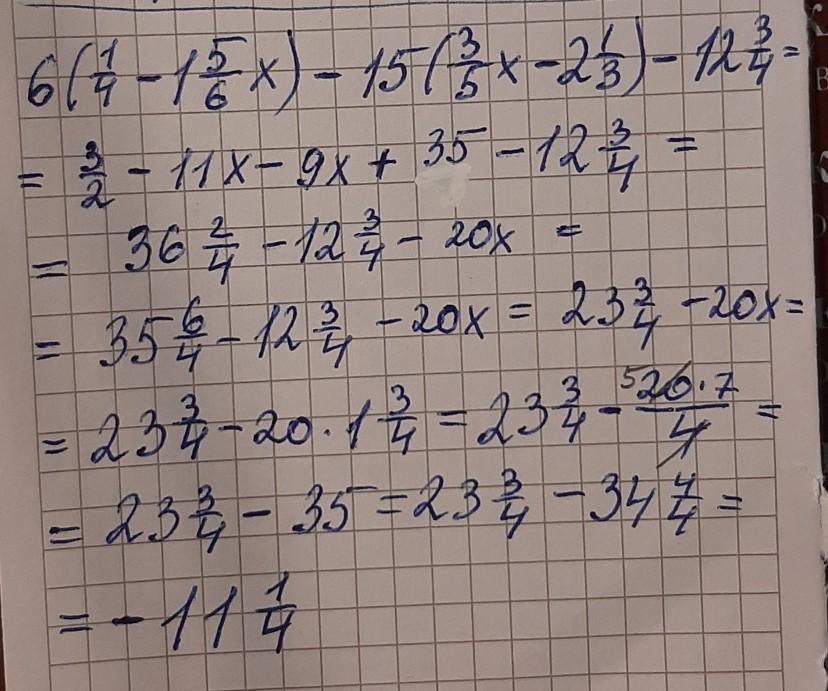 6(1/4 - 1 5/6 x) - 15(3/5 x - 2 1/3) - 12 3/4 =
= 3/2 - 11x - 9x + 35 - 12 3/4 =
= 36 2/4 - 12 3/4 - 20x =
= 35 6/4 - 12 3/4 - 20x = 23 3/4 - 20x =
= 23 3/4 - 20 · 1 3/4 = 23 3/4 - 5 20 · 7/4 =
= 23 3/4 - 35 = 23 3/4 - 34 4/4 =
= - 11 1/4